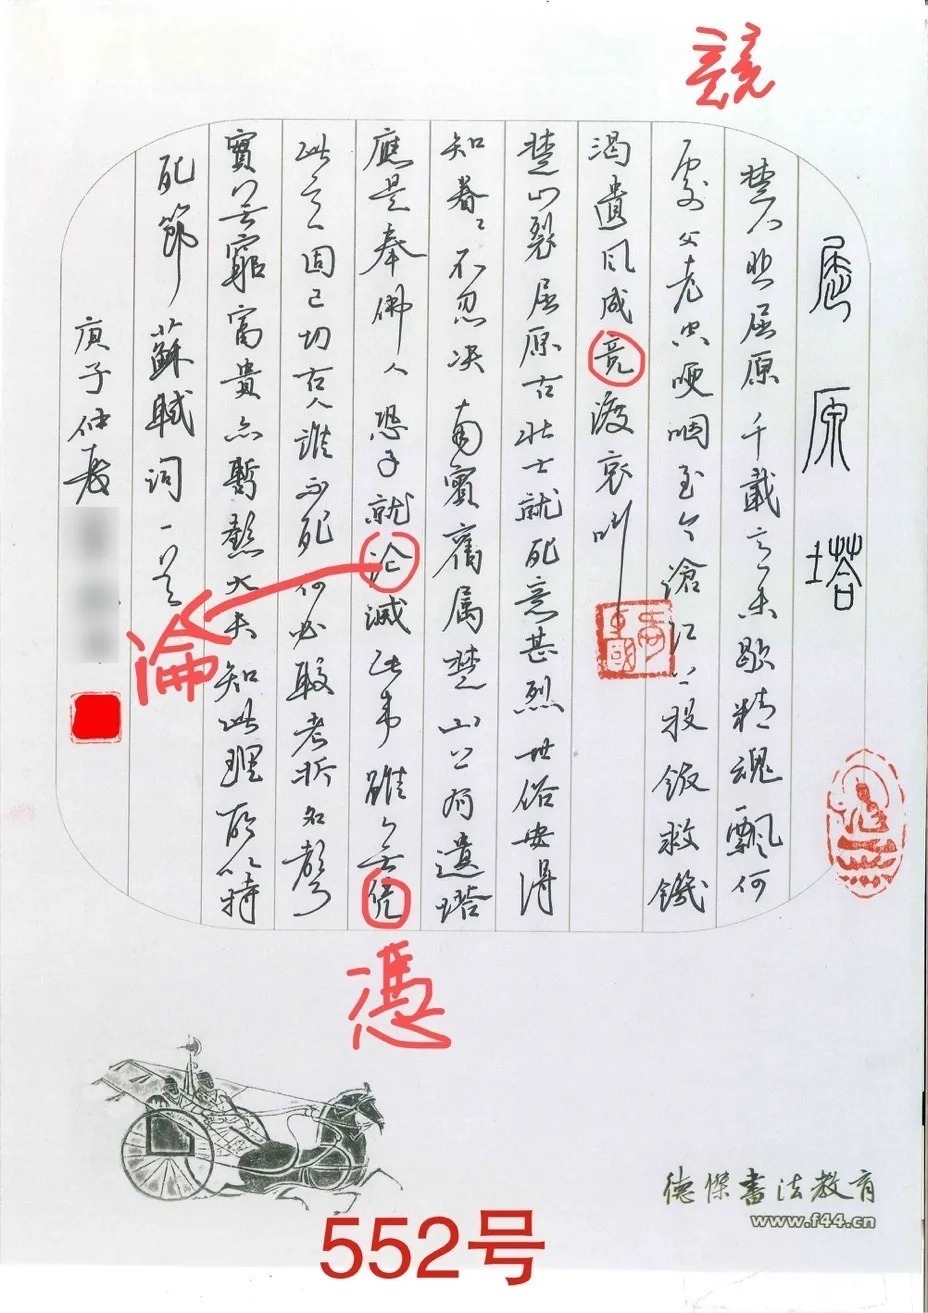 競
屈原塔
楚人悲屈原千載意未歇精魂飄何
處父老空哽咽至今滄江上投飯救饑
渴遺風成竞渡哀叫
楚山裂屈原古壯士就死意甚烈世俗安得
知眷々不忍決南賓舊属楚山上有遺塔
應是奉佛人恐子就沦滅此事雖无凭
此意固已切古人誰不死何必較考折名聲
實无窮富貴亦暫熱大夫知此理所以持
死節 蘇軾詞一首
庚子仲春
淪
憑
德傑書法教育
www.f44.cn
552号